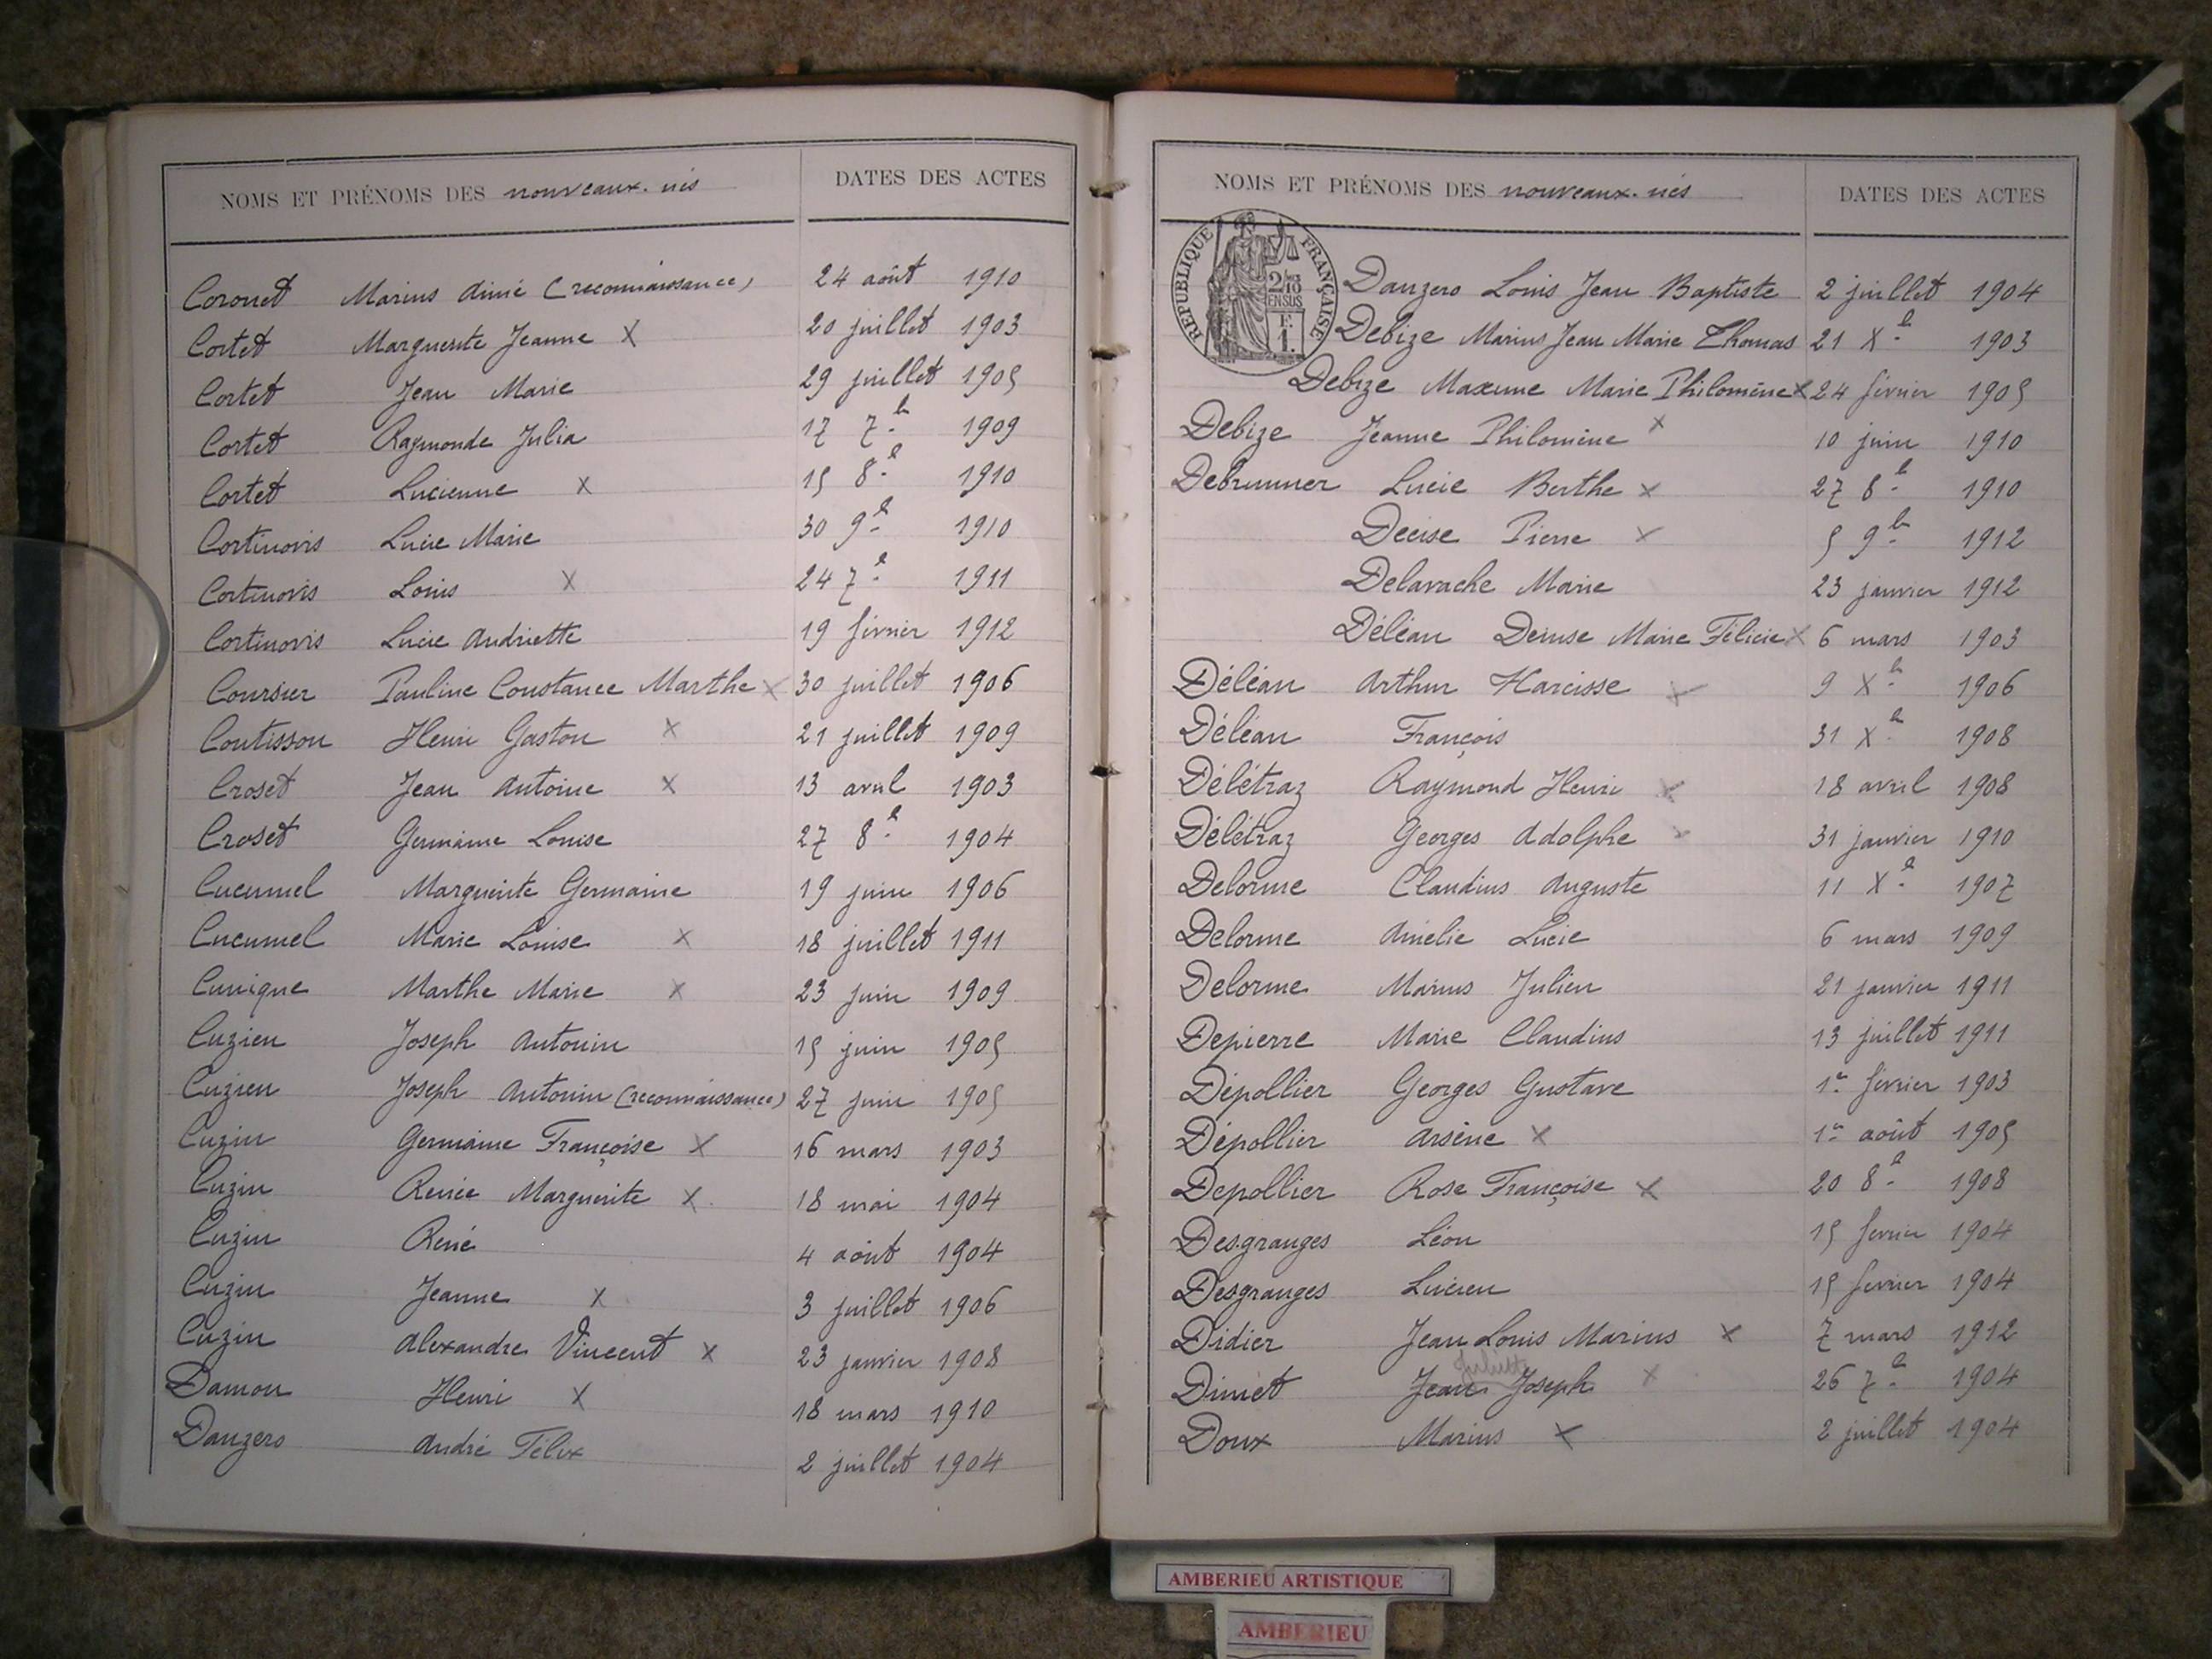 NOMS ET PRÉNOMS DES nouveaux-nés DATES DES ACTES
Coronet Marius Aimé (reconnaissance) 24 août 1910
Cortet Marguerite Jeanne X 20 juillet 1903
Cortet Jean Marie 29 juillet 1905
Cortet Raymonde Julia 17 7bre 1909
Cortet Lucienne X 15 8bre 1910
Cortinovis Lucie Marie 30 9bre 1910
Cortinovis Louis X 24 7bre 1911
Cortinovis Lucie Andriette 19 février 1912
Coursier Pauline Constance Marthe X 30 juillet 1906
Coutisson Henri Gaston X 21 juillet 1909
Croset Jean Antoine X 13 avril 1903
Croset Germaine Louise 27 8bre 1904
Cucumel Marguerite Germaine 19 juin 1906
Cucumel Marie Louise X 18 juillet 1911
Cunique Marthe Marie X 23 juin 1909
Cuzieu Joseph Antonin 15 juin 1905
Cuzieu Joseph Antonin (reconnaissance) 27 juin 1905
Cuzin Germaine Françoise X 16 mars 1903
Cuzin Renée Marguerite X 18 mai 1904
Cuzin René 4 août 1904
Cuzin Jeanne X 3 juillet 1906
Cuzin Alexandre Vincent X 23 janvier 1908
Damon Henri X 18 mars 1910
Danzero André Félix 2 juillet 1904
NOMS ET PRÉNOMS DES nouveaux-nés DATES DES ACTES
RÉPUBLIQUE FRANÇAISE
2/10 EN SUS
1 F.
Danzero Louis Jean Baptiste 2 juillet 1904
Debize Marius Jean Marie Thomas 21 Xbre 1903
Debize Maxime Marie Philomène X 24 février 1905
Debize Jeanne Philomène X 10 juin 1910
Debrunner Lucie Berthe X 27 8bre 1910
Decise Pierre X 5 9bre 1912
Delavache Marie 23 janvier 1912
Déléan Denise Marie Félicie X 6 mars 1903
Déléan Arthur Narcisse X 9 Xbre 1906
Déléan François 31 Xbre 1908
Délétraz Raymond Henri X 18 avril 1908
Délétraz Georges Adolphe X 31 janvier 1910
Delorme Claudius Auguste 11 Xbre 1907
Delorme Amélie Lucie 6 mars 1909
Delorme Marius Julien 21 janvier 1911
Depierre Marie Claudius 13 juillet 1911
Dépollier Georges Gustave 1er février 1903
Dépollier Arsène X 1er août 1905
Depollier Rose Françoise X 20 8bre 1908
Desgranges Léon 15 février 1904
Desgranges Lucien 15 février 1904
Didier Jean Louis Marius X 7 mars 1912
Dimet Jean Joseph X 26 7bre 1904
Doux Marius X 2 juillet 1904
AMBERIEU ARTISTIQUE
AMBERIEU